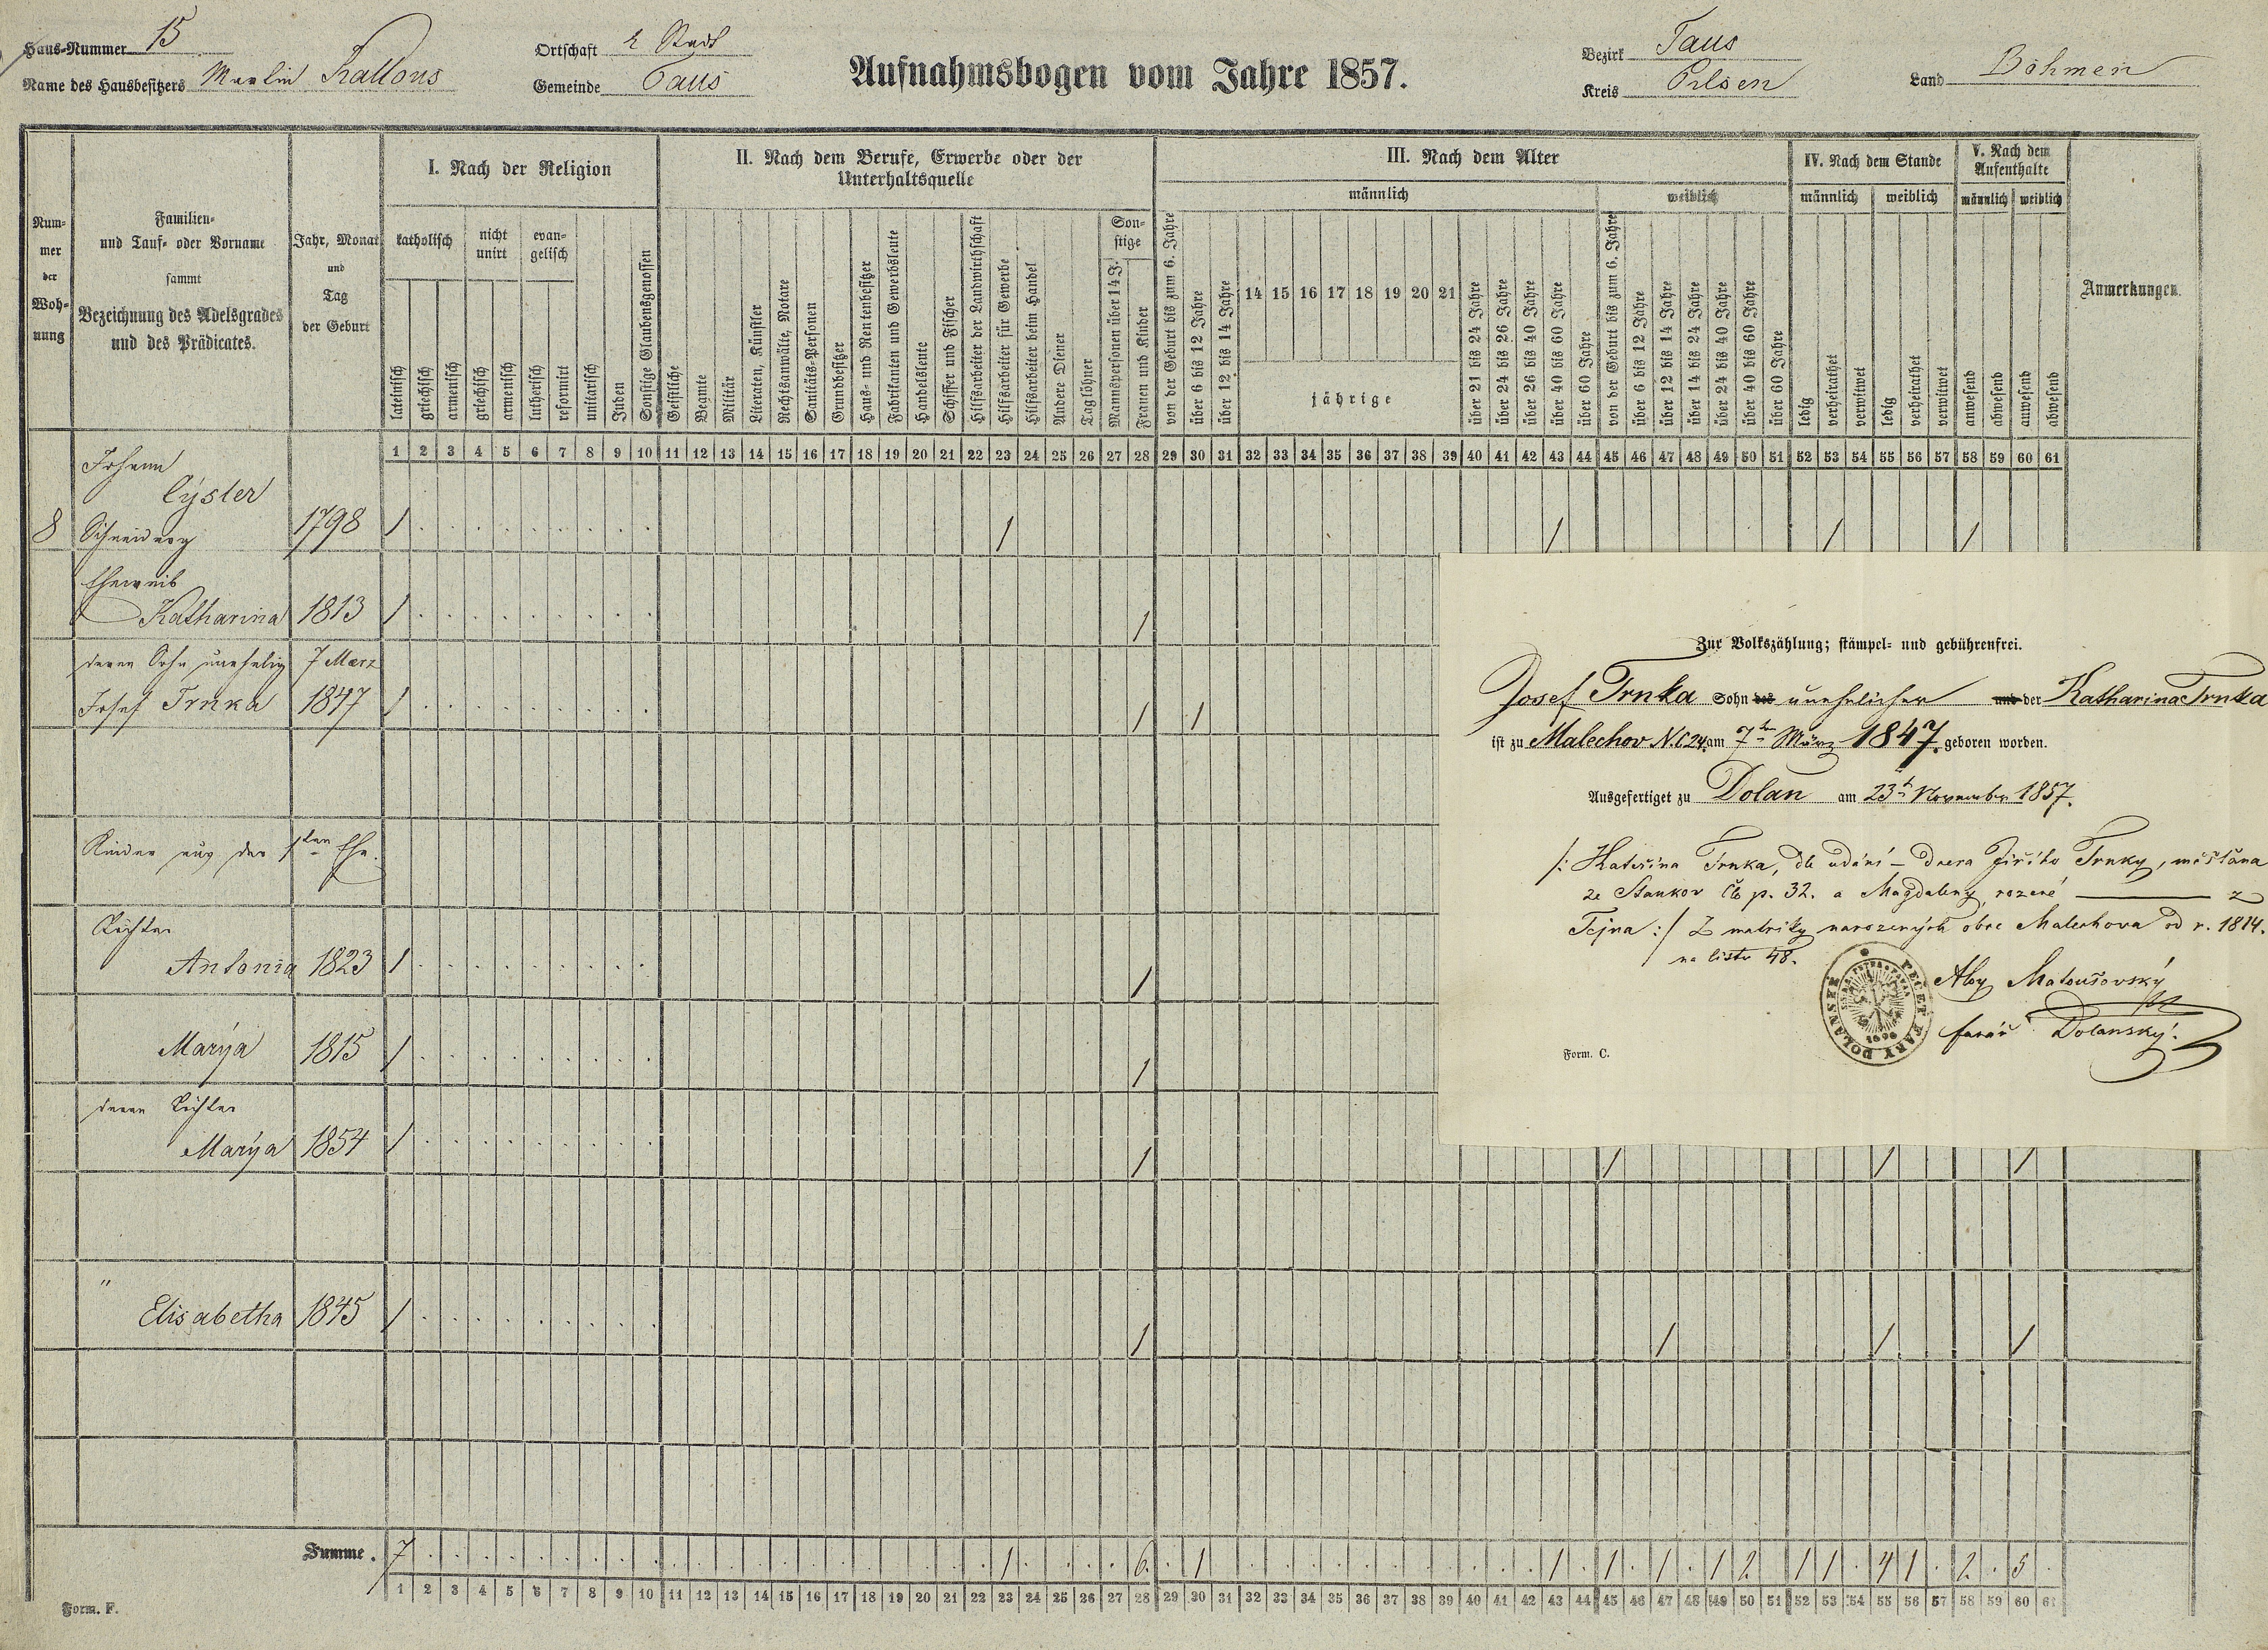 Haus-Nummer 15
Name des Hausbesitzers Martin Kallous
Ortschaft Stadt
Gemeinde Taus
Aufnahmsbogen vom Jahre 1857.
Bezirk Taus
Kreis Pilsen
Land Böhmen
Num-
mer
der
Woh-
nung
Familien-
und Tauf- oder Vorname
sammt
Bezeichnung des Adelsgrades
und des Prädicates.
Jahr, Monat
und
Tag
der Geburt
I. Nach der Religion
katholisch
nicht
unirt
evan-
gelisch
lateinisch
griechisch
armenisch
griechisch
armenisch
lutherisch
reformirt
unitarisch
Juden
Sonstige Glaubensgenossen
II. Nach dem Berufe, Erwerbe oder der
Unterhaltsquelle
Geistliche
Beamte
Militär
Literaten, Künstler
Rechtsanwälte, Notare
Sanitäts-Personen
Grundbesitzer
Haus- und Rentenbesitzer
Fabrikanten und Gewerbsleute
Handelsleute
Schiffer und Fischer
Hilfsarbeiter der Landwirthschaft
Hilfsarbeiter für Gewerbe
Hilfsarbeiter beim Handel
Andere Diener
Taglöhner
Son-
stige
Mannspersonen über 14 J.
Frauen und Kinder
III. Nach dem Alter
männlich
von der Geburt bis zum 6. Jahre
über 6 bis 12 Jahre
über 12 bis 14 Jahre
14 15 16 17 18 19 20 21
jährige
über 21 bis 24 Jahre
über 24 bis 26 Jahre
über 26 bis 40 Jahre
über 40 bis 60 Jahre
über 60 Jahre
weiblich
von der Geburt bis zum 6. Jahre
über 6 bis 12 Jahre
über 12 bis 14 Jahre
über 14 bis 24 Jahre
über 24 bis 40 Jahre
über 40 bis 60 Jahre
über 60 Jahre
IV. Nach dem Stande
männlich weiblich
ledig
verheirathet
verwitwet
ledig
verheirathet
verwitwet
V. Nach dem
Aufenthalte
männlich weiblich
anwesend
abwesend
anwesend
abwesend
Anmerkungen.
1 2 3 4 5 6 7 8 9 10 11 12 13 14 15 16 17 18 19 20 21 22 23 24 25 26 27 28 29 30 31 32 33 34 35 36 37 38 39 40 41 42 43 44 45 46 47 48 49 50 51 52 53 54 55 56 57 58 59 60 61
Johann
Cýsler
8 Schneiderg 1798 1 1 1 1 1
Eheweib
Katharina 1813 1 1
deren Sohn unehelig 7 März
Josef Trnka 1847 1 1 1
Kinder aus der 1ten Ehe.
Tochter
Antonia 1823 1 1
Marýa 1815 1 1
deren Tochter
Marýa 1854 1 1 1 1 1
" Elisabetha 1845 1 1 1 1 1
Zur Volkszählung; stämpel- und gebührenfrei.
Josef Trnka Sohn des unehelicher und der Katharina Trnka
ist zu Malechov N.C 24. am 7ten März 1847. geboren worden.
Ausgefertiget zu Dolan am 23t November 1857.
/: Kateřina Trnka, dle udání – dcera Jiřího Trnky, měšťana
ze Stankov čís p. 32. a Magdaleny, rozené z
Tejna :/ Z matriky narozených obce Malechova od r. 1814.
na listu 48.
Aloy Matoušovský
farář Dolanský.
PEČEŤ FARY DOLANSKÉ
Form. C.
Summe. 7 1 6. 1 1 1 1 1 2 1 1 4 1 2 5
1 2 3 4 5 6 7 8 9 10 11 12 13 14 15 16 17 18 19 20 21 22 23 24 25 26 27 28 29 30 31 32 33 34 35 36 37 38 39 40 41 42 43 44 45 46 47 48 49 50 51 52 53 54 55 56 57 58 59 60 61
Form. F.